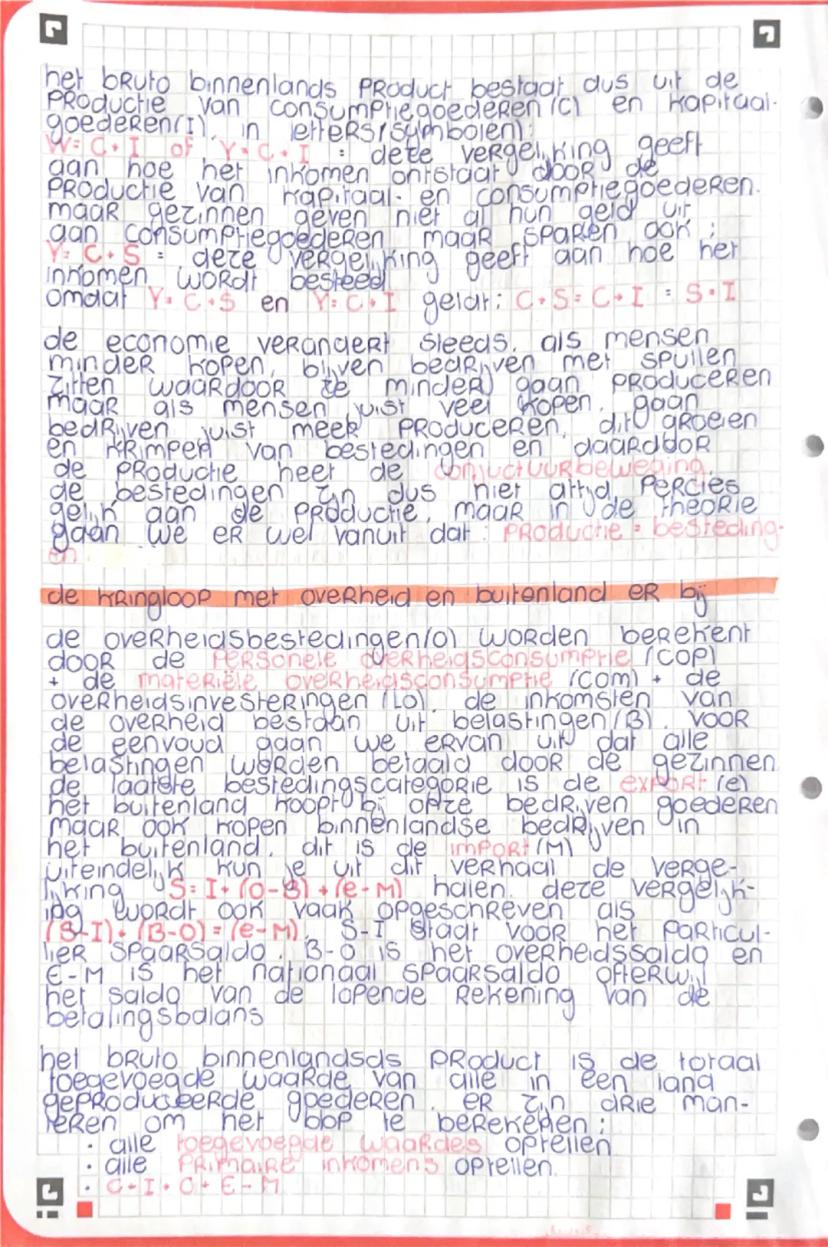 het bruto binnenlands product bestaat dus uit de
productie van consumptiegoederen (C) en kapitaal-
goederen (I). in letters/symbolen:
W = C + I of Y = C + I = deze vergelijking geeft
aan hoe het inkomen ontstaat door de
productie van kapitaal- en consumptiegoederen.
maar gezinnen geven niet al hun geld uit
aan consumptiegoederen maar sparen ook:
Y = C + S = deze vergelijking geeft aan hoe het
inkomen wordt besteed
omdat Y = C + S en Y = C + I geldt: C + S = C + I = S = I
de economie verandert steeds. als mensen
minder kopen, blijven bedrijven met spullen
zitten waardoor ze minder gaan produceren
maar als mensen juist veel kopen, gaan
bedrijven juist meer produceren. dit groeien
en krimpen van bestedingen en daardoor
de productie heet de conjuctuurbeweging.
de bestedingen zijn dus niet altijd percies
gelijk aan de productie, maar in de theorie
gaan we er wel vanuit dat: productie = besteding-
en
de kringloop met overheid en buitenland er bij
de overheidsbestedingen (O) worden berekent
door de personele overheidsconsumptie (COP)
+ de materiële overheidsconsumptie (COM) + de
overheidsinvesteringen (LO). de inkomsten van
de overheid bestaan uit belastingen (B). voor
de eenvoud gaan we ervan uit dat alle
belastingen worden betaald door de gezinnen.
de laatste bestedingscategorie is de export (e)
het buitenland koopt bij onze bedrijven goederen
maar ook kopen binnenlandse bedrijven in
het buitenland. dit is de import (M)
uiteindelijk kun je uit dit verhaal de verge-
lijking S = I + (O - B) + (e - M) halen. deze vergelijk-
ing wordt ook vaak opgeschreven als
(S - I) + (B - O) = (e - M). S - I staat voor het particul-
ier spaarsaldo. B - O is het overheidssaldo en
E - M is het nationaal spaarsaldo ofterwijl
het saldo van de lopende rekening van de
betalingsbalans
het bruto binnenlandsds product is de totaal
toegevoegde waarde van alle in een land
geproduceerde goederen. er zijn drie man-
ieren om het bbp te berekenen:
• alle toegevoegde waardes optellen
• alle primaire inkomens optellen.
• C + I + O + E - M